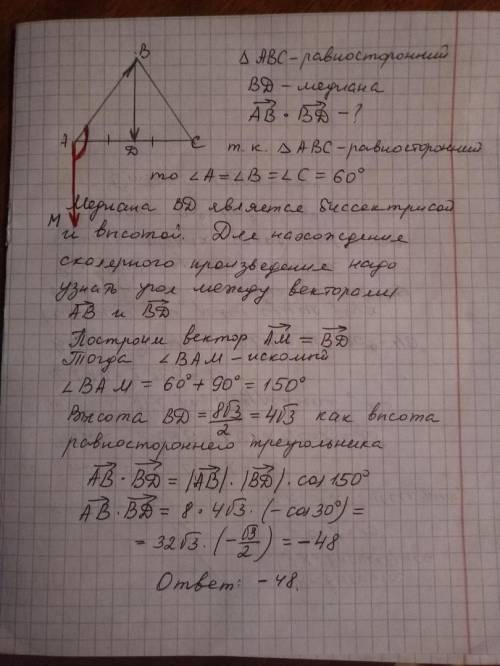 B
△ ABC – равносторонний
BD – медиана
A⃗B⃗ · B⃗D⃗ – ?
A
D
C
т.к. △ ABC – равносторонний
то ∠A = ∠B = ∠C = 60°
M
Медиана BD является биссектрисой
и высотой. Для нахождения
скалярного произведения надо
узнать угол между векторами
A⃗B⃗ и B⃗D⃗
Построим вектор A⃗M⃗ = B⃗D⃗
Тогда ∠BAM – искомый
∠BAM = 60° + 90° = 150°
Высота BD = 8√3/2 = 4√3 как высота
равностороннего треугольника
A⃗B⃗ · B⃗D⃗ = |A⃗B⃗| · |B⃗D⃗| · cos 150°
A⃗B⃗ · B⃗D⃗ = 8 · 4√3 · (– cos 30°) =
= 32√3 · (– √3/2) = – 48
Ответ: – 48.